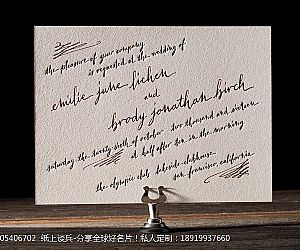 the pleasure of your company
is requested at the wedding of
emilie jane lichen
and
brody jonathan birch
saturday the twenty-sixth of october two thousand and sixteen
at half after ten in the morning
the olympic club lakeside clubhouse
san francisco, california
05406702 纸上谈兵-分享全球好名片！私人定制：18919937660